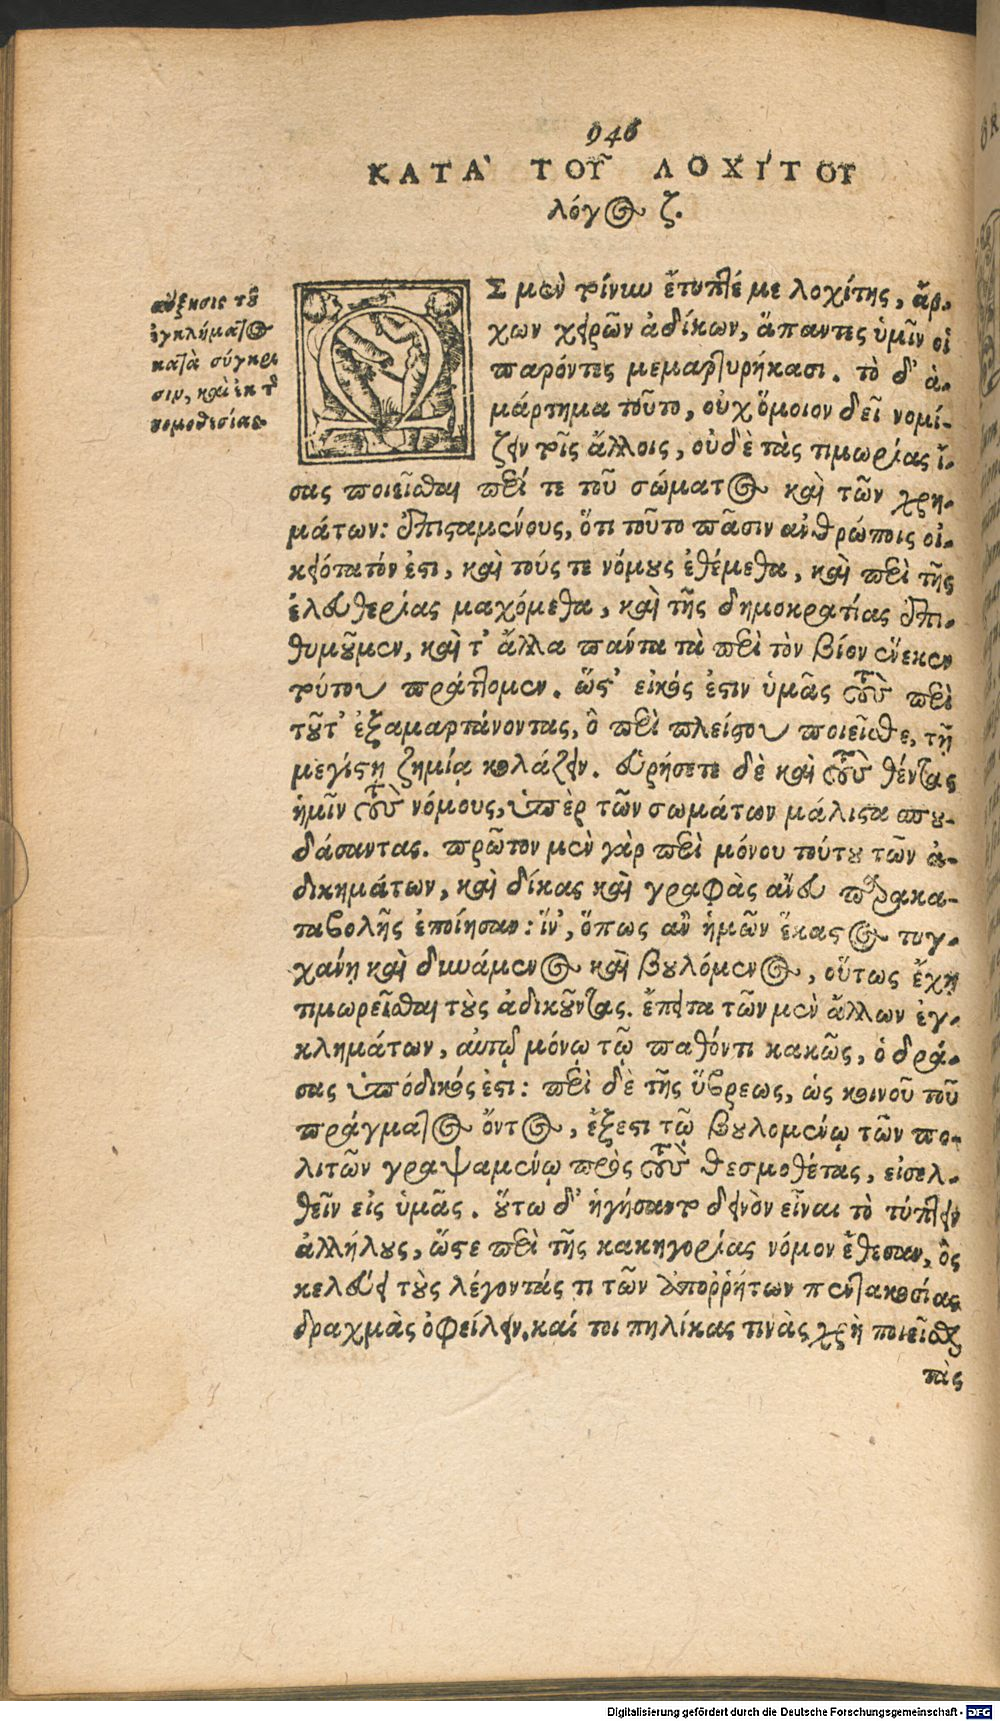 946
ΚΑΤΑ` ΤΟΥ͂ ΛΟΧΙ´ΤΟΥ
λόγος ζ.
αὔξησις τοῦ
ἐγκλήματος
κατὰ σύγκρι
σιν, καὶ ἐκ τῆς
νομοθεσίας.
ΩΣ μὲν τοίνυν ἔτυπτέ με λοχίτης, ἄρ-
χων χειρῶν ἀδίκων, ἅπαντες ὑμῖν οἱ
παρόντες μεμαρτυρήκασι. τὸ δ' ἁ-
μάρτημα τοῦτο, οὐχ ὅμοιον δεῖ νομί-
ζειν τοῖς ἄλλοις, οὐδὲ τὰς τιμωρίας ἴ-
σας ποιεῖσθαι περί τε τοῦ σώματος καὶ τῶν χρη-
μάτων: ἐπισταμένους, ὅτι τοῦτο πᾶσιν ἀνθρώποις οἰ-
κειότατόν ἐστι, καὶ τούς τε νόμους ἐθέμεθα, καὶ περὶ τῆς
ἐλευθερίας μαχόμεθα, καὶ τῆς δημοκρατίας ἐπι-
θυμοῦμεν, καὶ τ' ἄλλα πάντα τὰ περὶ τὸν βίον ἕνεκεν
τούτου πράττομεν. ὥστ' εἰκός ἐστιν ὑμᾶς τοὺς περὶ
τοῦτ' ἐξαμαρτάνοντας, ὃ περὶ πλείστου ποιεῖσθε, τῇ
μεγίστῃ ζημίᾳ κολάζειν. εὑρήσετε δὲ καὶ τοὺς θέντας
ἡμῖν τοὺς νόμους, ὑπὲρ τῶν σωμάτων μάλιστα σπου-
δάσαντας. πρῶτον μὲν γὰρ περὶ μόνου τούτου τῶν ἀ-
δικημάτων, καὶ δίκας καὶ γραφὰς ἄνευ παρακα-
ταβολῆς ἐποίησαν: ἵν', ὅπως ἂν ἡμῶν ἕκαστος τυγ-
χάνῃ καὶ δυνάμενος καὶ βουλόμενος, οὕτως ἔχῃ
τιμωρεῖσθαι τοὺς ἀδικοῦντας. ἔπειτα τῶν μὲν ἄλλων ἐγ-
κλημάτων, αὐτῷ μόνῳ τῷ παθόντι κακῶς, ὁ δρά-
σας ὑπόδικός ἐστι: περὶ δὲ τῆς ὕβρεως, ὡς κοινοῦ τοῦ
πράγματος ὄντος, ἔξεστι τῷ βουλομένῳ τῶν πο-
λιτῶν γραψαμένῳ πρὸς τοὺς θεσμοθέτας, εἰσελ-
θεῖν εἰς ὑμᾶς. οὕτω δ' ἡγήσαντο δεινὸν εἶναι τὸ τύπτειν
ἀλλήλους, ὥστε περὶ τῆς κακηγορίας νόμον ἔθεσαν, ὃς
κελεύει τοὺς λέγοντάς τι τῶν ἀπορῥήτων πεντακοσίας
δραχμὰς ὀφείλειν. καί τοι πηλίκας τινὰς χρὴ ποιεῖσθαι
τὰς
Digitalisierung gefördert durch die Deutsche Forschungsgemeinschaft - DFG